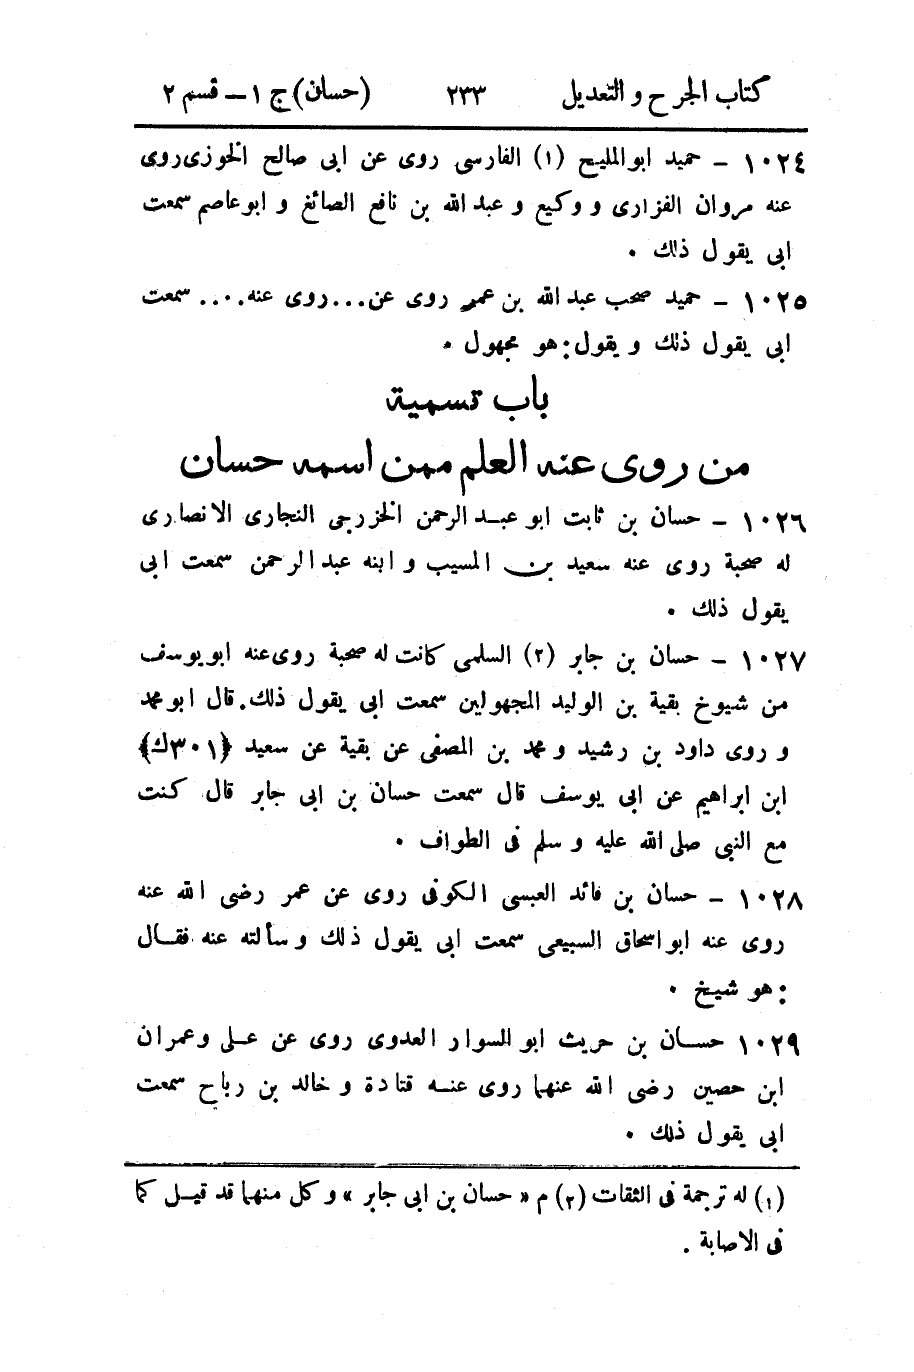 كتاب الجرح و التعديل ٢٣٣ (حسان) ج ١ – قسم ٢
١٠٢٤ – حميد ابو المليح (١) الفارسى روى عن ابى صالح الخوزى روى
عنه مروان الفزارى و وكيع و عبد الله بن نافع الصائغ و ابو عاصم سمعت
ابى يقول ذلك .
١٠٢٥ – حميد صحب عبد الله بن عمر روى عن... روى عنه ... سمعت
ابى يقول ذلك و يقول: هو مجهول .
باب تسمية
من روى عنه العلم ممن اسمه حسان
١٠٢٦ – حسان بن ثابت ابو عبد الرحمن الخزرجى النجارى الانصارى
له صحبة روى عنه سعيد بن المسيب و ابنه عبد الرحمن سمعت ابى
يقول ذلك .
١٠٢٧ – حسان بن جابر (٢) السلمى كانت له صحبة روى عنه ابو يوسف
من شيوخ بقية بن الوليد المجهولين سمعت ابى يقول ذلك. قال ابو محمد
و روى داود بن رشيد و محمد بن المصفى عن بقية عن سعيد ﴿٣٠١ك﴾
ابن ابراهيم عن ابى يوسف قال سمعت حسان بن ابى جابر قال كنت
مع النبى صلى الله عليه و سلم فى الطواف .
١٠٢٨ – حسان بن فائد العبسى الكوفى روى عن عمر رضى الله عنه
روى عنه ابو اسحاق السبيعى سمعت ابى يقول ذلك و سألته عنه فقال
: هو شيخ .
١٠٢٩ حسان بن حريث ابو السوار العدوى روى عن على وعمران
ابن حصين رضى الله عنهما روى عنه قتادة و خالد بن رباح سمعت
ابى يقول ذلك .
(١) له ترجمة فى الثقات (٢) م « حسان بن ابى جابر » و كل منهما قد قيل كما
فى الاصابة .